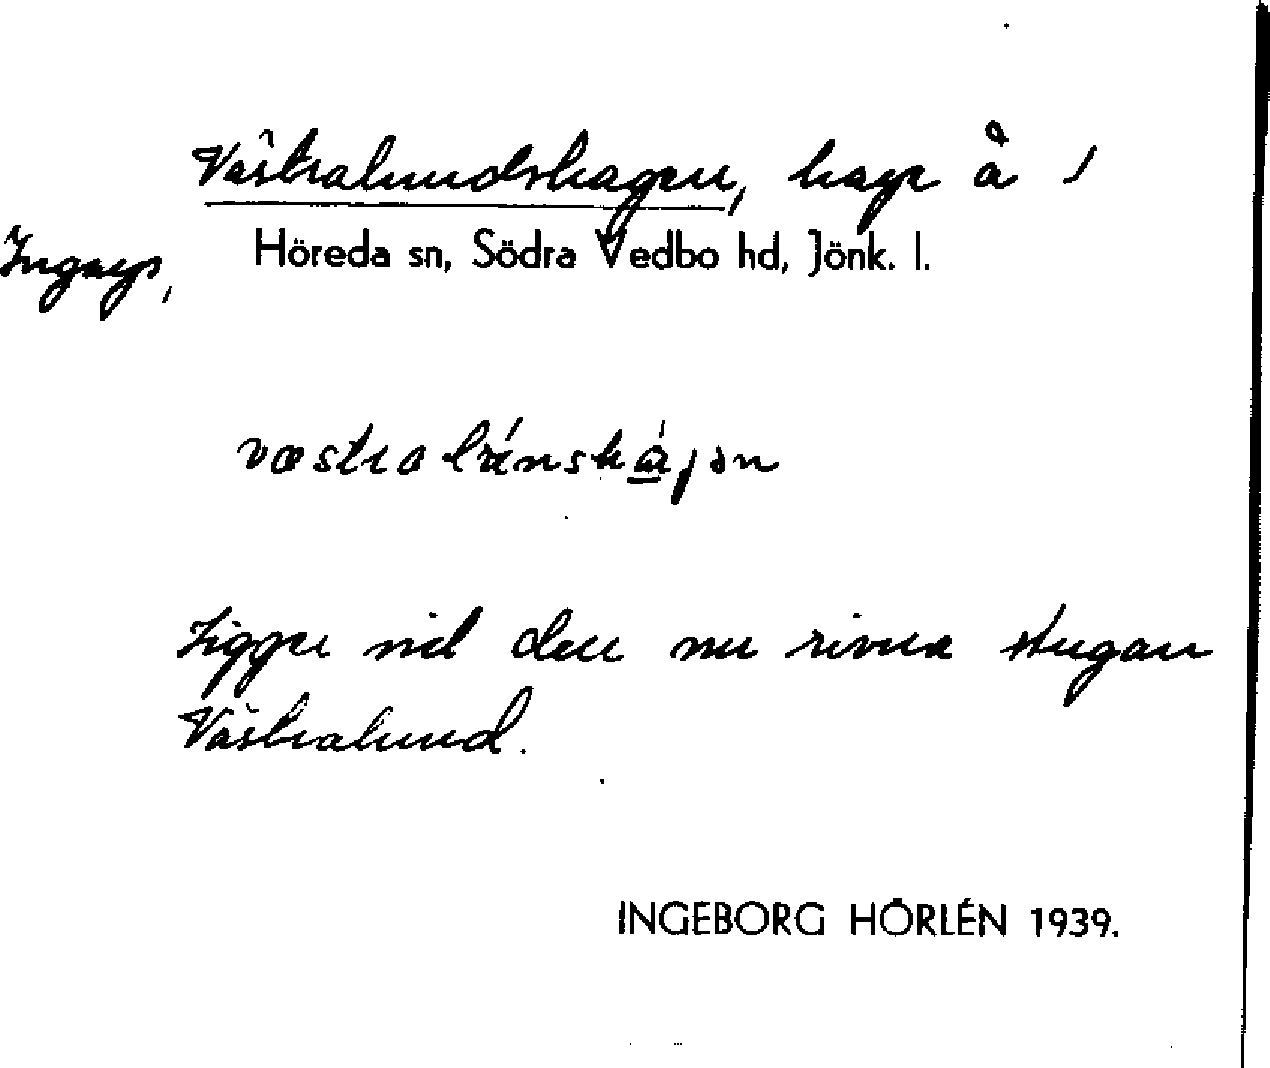 Västralundshagen, hage å /
Ingarp, Höreda sn, Södra Vedbo hd, Jönk. l.
Ligger vid den nu rivna stugan
Västralund.
INGEBORG HÖRLÉN 1939.